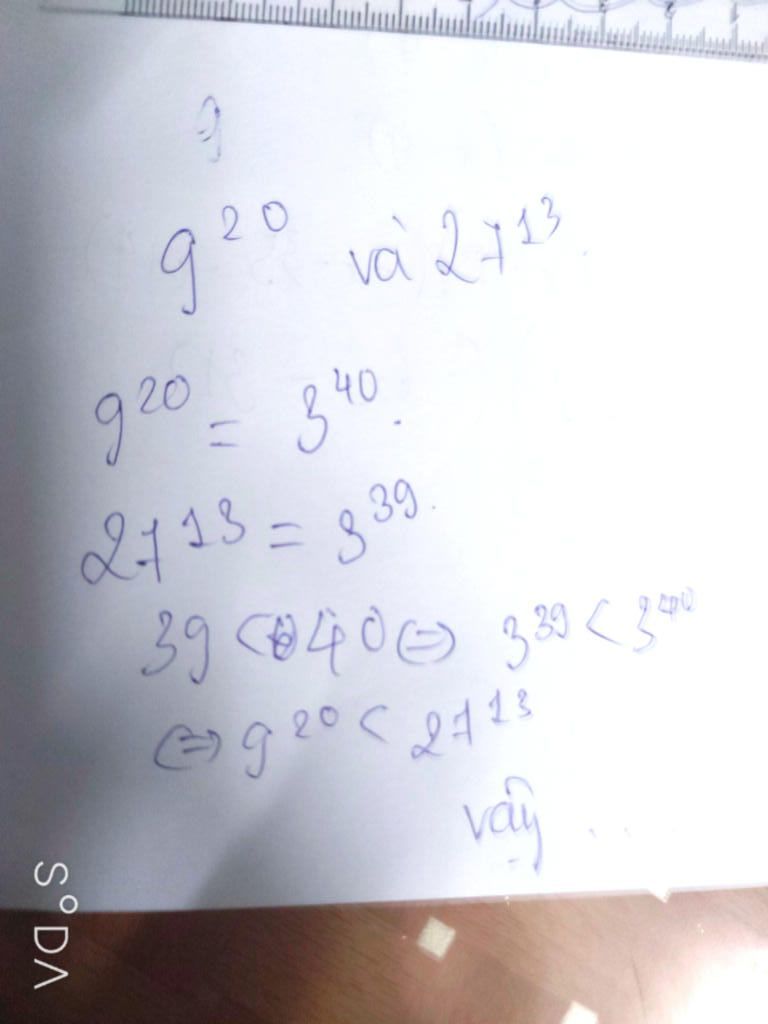 9
9²⁰ và 27¹³.
9²⁰ = 3⁴⁰.
27¹³ = 3³⁹.
39 < 40 ⇔ 3³⁹ < 3⁴⁰
⇔ 9²⁰ < 27¹³
vậy ....
SODA